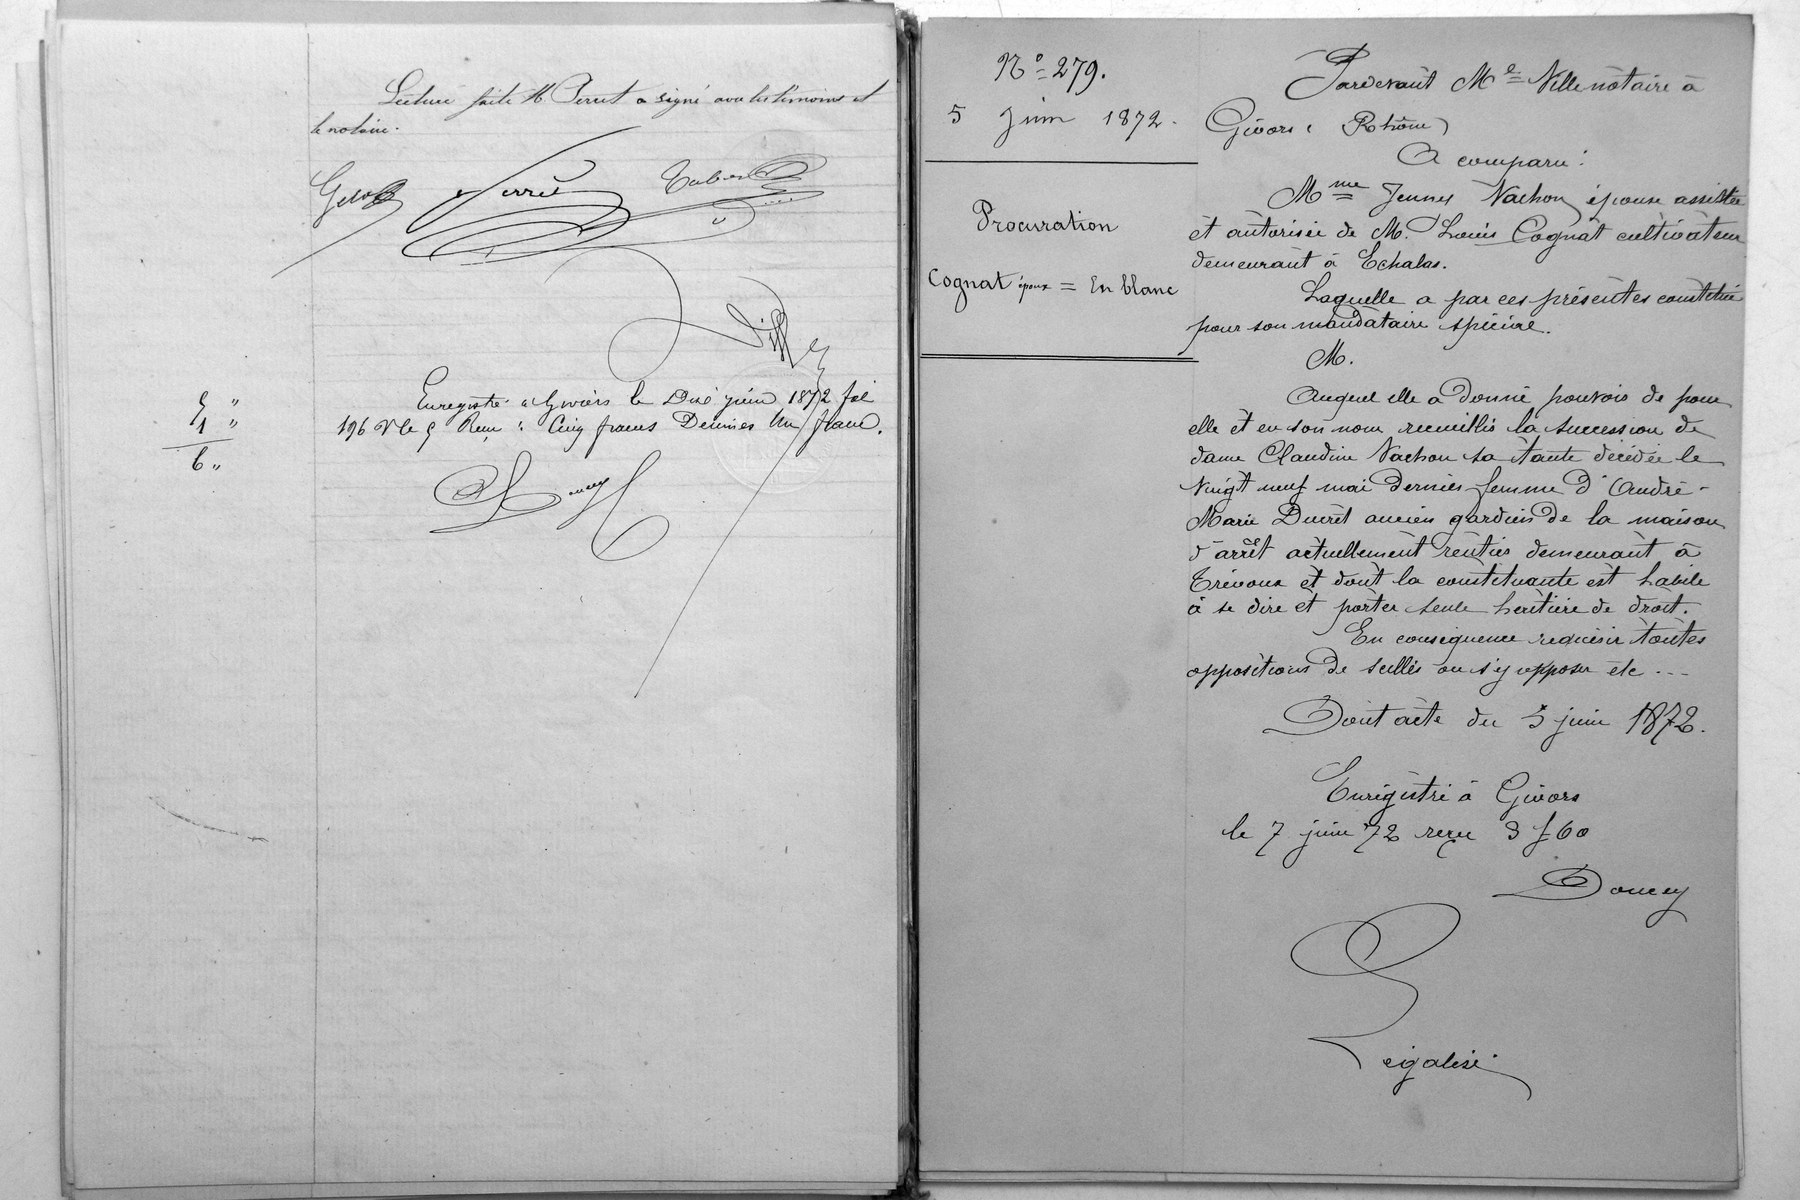 Lecture faite M. Perret a signé avec les témoins et
le notaire.
Perret
Ville
Enregistré à Givors le Dix juin 1872 fol
196 V° Ce 5 Reçu : Cinq francs Décimes Un franc.
5 "
1 "
6 "
Doucey
N° 279.
5 Juin 1872.
Procuration
Cognat époux = En blanc
Pardevant Me Ville notaire à
Givors (Rhône)
A comparu :
Mme Jenny Vachon épouse assistée
et autorisée de M. Louis Cognat cultivateur
demeurant à Echalas.
Laquelle a par ces présentes constitué
pour son mandataire spécial.
M.
Auquel elle a donné pouvoir de pour
elle et en son nom recueillir la succession de
dame Claudine Vachon sa tante décédée le
vingt neuf mai dernier femme d'André-
Marie Ducret ancien gardien de la maison
d'arrêt actuellement rentier demeurant à
Trévoux et dont la constituante est habile
à se dire et porter seule héritière de droit.
En conséquence requérir toutes
oppositions de scellés ou s'y opposer etc ...
Dont acte du 5 juin 1872.
Enregistré à Givors
le 7 juin 72 reçu 3 f 60
Doucey
Légalisé.